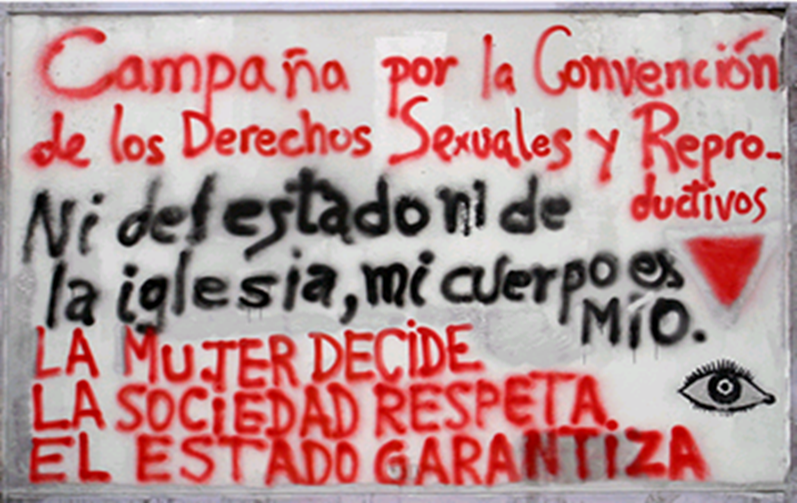 Campaña por la Convención
de los Derechos Sexuales y Repro-
ductivos
Ni del estado ni de
la iglesia, mi cuerpo es
MÍO.
LA MUJER DECIDE
LA SOCIEDAD RESPETA
EL ESTADO GARANTIZA